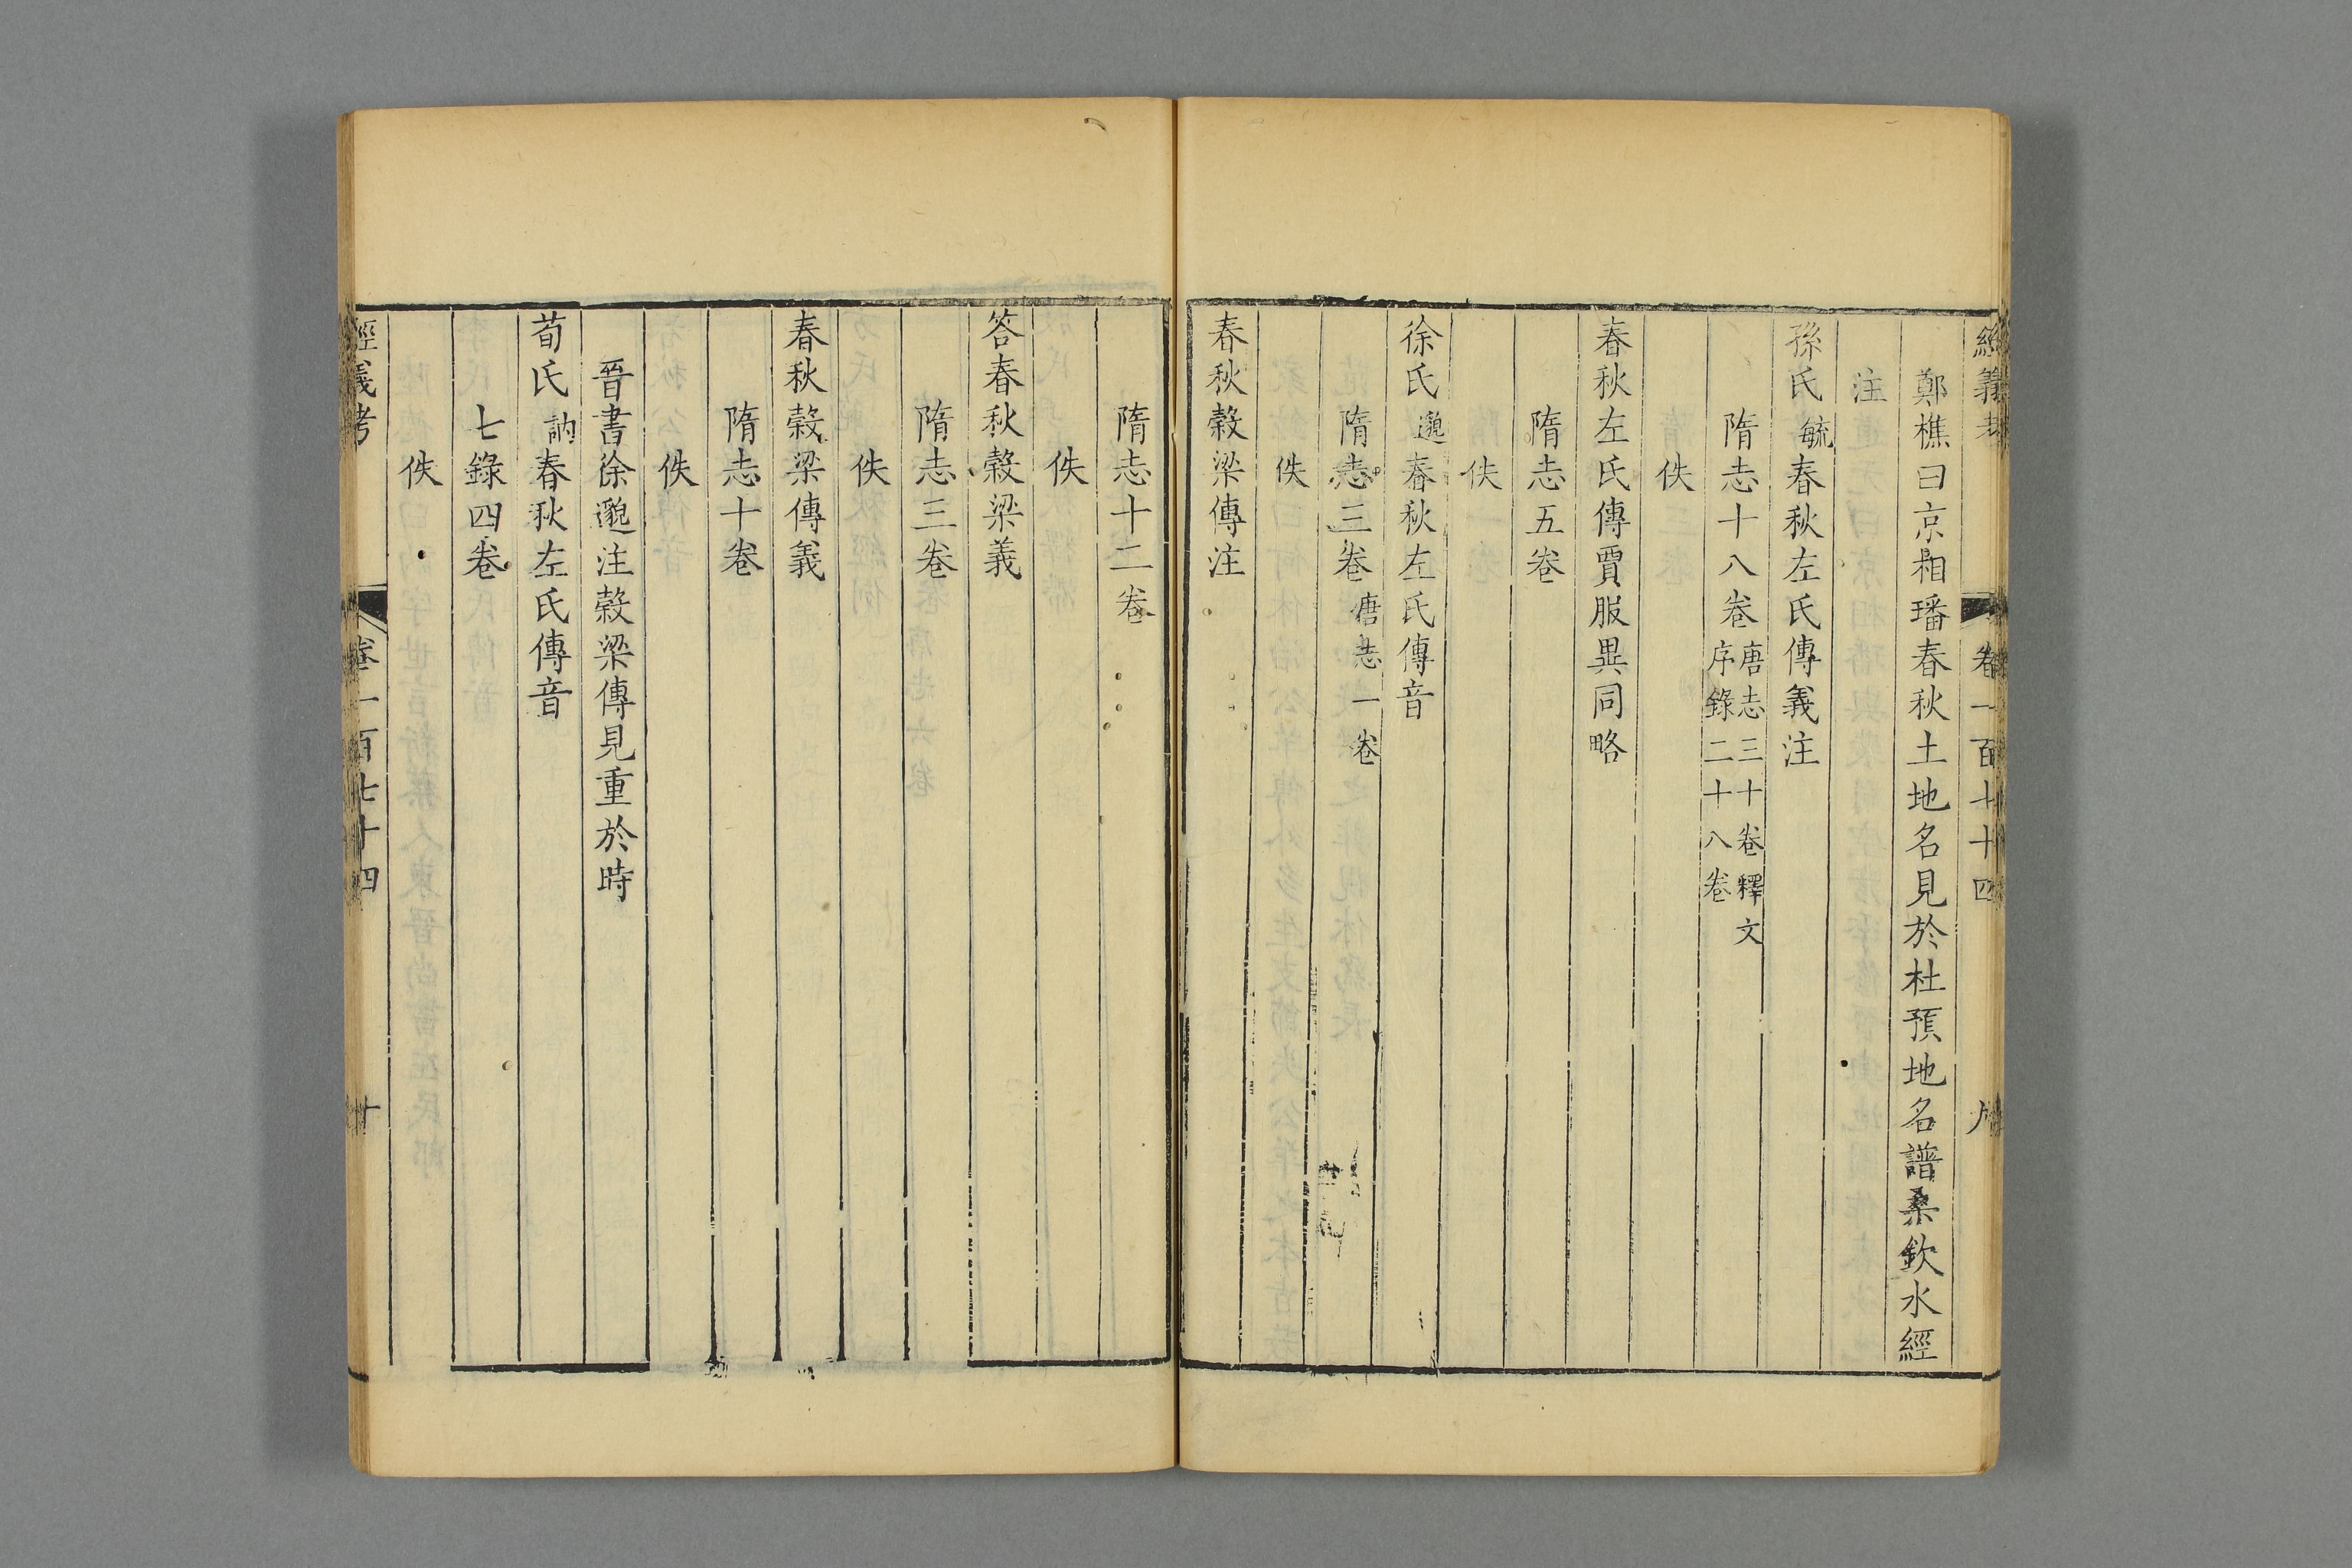 經義考 卷一百七十四 九
鄭樵曰京相璠春秋土地名見於杜預地名譜桑欽水經
注
孫氏毓春秋左氏傳義注
隋志十八卷唐志三十卷釋文序錄二十八卷
佚
春秋左氏傳賈服異同略
隋志五卷
佚
徐氏邈春秋左氏傳音
隋志三卷唐志一卷
佚
春秋穀梁傳注
隋志十二卷
佚
答春秋穀梁義
隋志三卷
佚
春秋穀梁傳義
隋志十卷
佚
晉書徐邈注穀梁傳見重於時
荀氏訥春秋左氏傳音
七錄四卷
佚
經義考 卷一百七十四 十